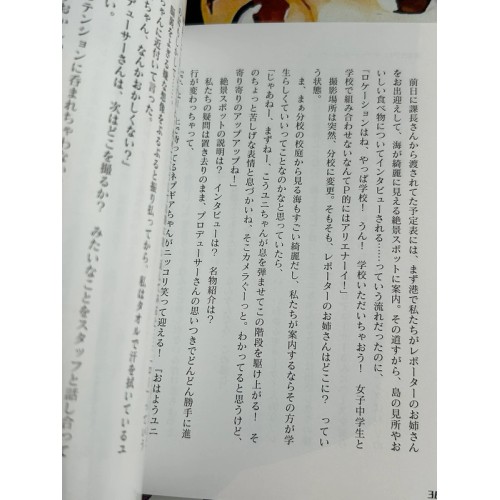 前日に課長さんから渡されてた予定表には、まず港で私たちがレポーターのお姉さん
をお出迎えして、海が綺麗に見える絶景スポットに案内。その道すがら、島の見所やお
いしい食べ物についてインタビューされる……っていう流れだったのに、
「ロケーションはね、やっぱ学校！　うん！　学校いただいちゃおう！　女子中学生と
学校で組み合わせないなんてP的にはアリエナーイ！」
撮影場所は突然、分校に変更。そもそも、レポーターのお姉さんはどこに？　ってい
う状態。
ま、まぁ分校の校庭から見る海もすごい綺麗だし、私たちが案内するならその方が学
生らしくていいってことなのかなと思っていたら、
「じゃあねー、まずねー、こうユニちゃんが息を弾ませてこの階段を駆け上がる！　そ
のちょっと苦しげな表情と息づかいね、そこカメラぐーっと。わかってると思うけど、
寄り寄りのアップアップね！」
絶景スポットの説明は？　インタビューは？　名物紹介は？
私たちの疑問は置き去りのまま、プロデューサーさんの思いつきでどんどん勝手に進
行が変わっちゃって、
ネプギアちゃんがニッコリ笑って迎える！　「おはようユニ
ぶるぶると振り払ってから、私はタオルで汗を拭いているユ
ちゃんに近付いて言った。
ちゃん、なんかおかしくない？」
デューサーさんは、次はどこを撮るか？　みたいなことをスタッフと話し合って
テンションに呑まれちゃ